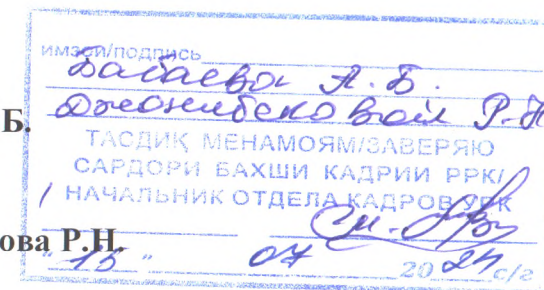 имзои/подпись
Бабаева А.Б.
Б.
Джонибековой Р.Н
ТАСДИҚ МЕНАМОЯМ/ЗАВЕРЯЮ
САРДОРИ БАХШИ КАДРИИ РРК/
НАЧАЛЬНИК ОТДЕЛА КАДРОВ УРК
ова Р.Н.
"15" 07 2024 с/г